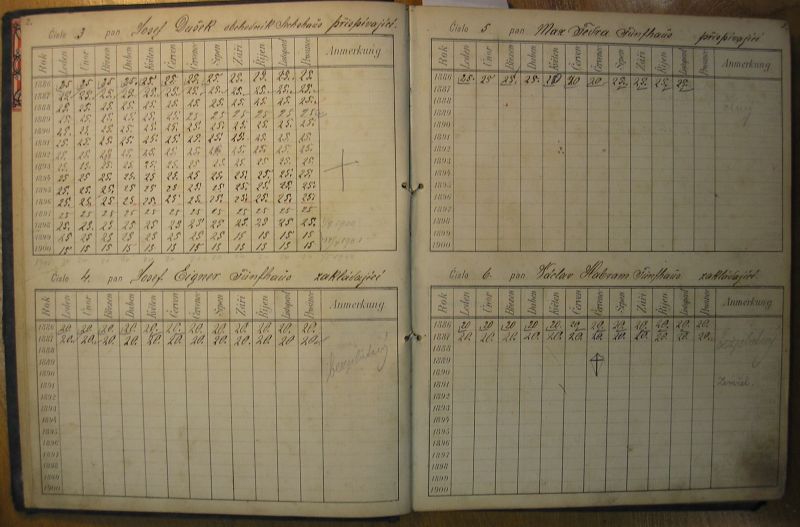 2.
Číslo 3 pan Josef Dušek obchodník Sechshaus přispívající.
Rok Leden Únor Březen Duben Květen Červen Červenec Srpen Září Říjen Listopad Prosinec Anmerkung
1886 25. 25. 25. 25. 25. 25. 25. 25. 25. 25. 25. 25.
1887 25. 25. 25. 25. 25. 25. 25. 25. 25. 25. 25. 25.
1888 25. 25. 25. 25. 25. 25. 25. 25. 25. 25. 25. 25.
1889 25. 25. 25. 25. 25. 25. 25. 25. 25. 25. 25. 25.
1890 25. 25. 25. 25. 25. 25. 25. 25. 25. 25. 25. 25.
1891 25. 25. 25. 25. 25. 25. 25. 25. 25. 25. 25. 25.
1892 25. 25. 25. 25. 25. 25. 25. 25. 25. 25. 25. 25.
1893 25 25 25 25 25 25 25 25 25 25 25 25
1894 25. 25. 25. 25. 25. 25. 25. 25. 25. 25. 25. 25.
1895 25. 25. 25. 25. 25. 25. 25. 25. 25. 25. 25. 25.
1896 25. 25. 25. 25. 25. 25. 25. 25. 25. 25. 25. 25.
1897 25 25 25 25 25 25 25 25 25 25 25 25
1898 25. 25. 25. 25. 25. 25. 25. 25. 25. 25. 25. 25.
1899 25 25 25 25 25 25 25 25 15 15 15 15
1900 15 15 15 15 15 15 15 15 15 15 15 15
Číslo 4. pan Josef Eigner Fünfhaus zakládající
Rok Leden Únor Březen Duben Květen Červen Červenec Srpen Září Říjen Listopad Prosinec Anmerkung
1886 20. 20. 20. 20. 20. 20. 20. 20. 20. 20. 20. 20.
1887 20. 20. 20. 20. 20. 20. 20. 20. 20. 20. 20. 20.
1888
1889
1890
1891
1892
1893
1894
1895
1896
1897
1898
1899
1900
Číslo 5 pan Max Fedra Fünfhaus přispívající
Rok Leden Únor Březen Duben Květen Červen Červenec Srpen Září Říjen Listopad Prosinec Anmerkung
1886 25. 25. 25. 25. 20 20 25. 25. 25. 25.
1887
1888
1889
1890
1891
1892
1893
1894
1895
1896
1897
1898
1899
1900
Číslo 6. pan Václav Habram Fünfhaus zakládající.
Rok Leden Únor Březen Duben Květen Červen Červenec Srpen Září Říjen Listopad Prosinec Anmerkung
1886 20 20 20 20 20 20 20. 20. 20. 20. 20. 20.
1887 20. 20. 20. 20. 20. 20. 20. 20. 20. 20. 20. 20.
1888
1889
1890
1891 Zemřel.
1892
1893
1894
1895
1896
1897
1898
1899
1900